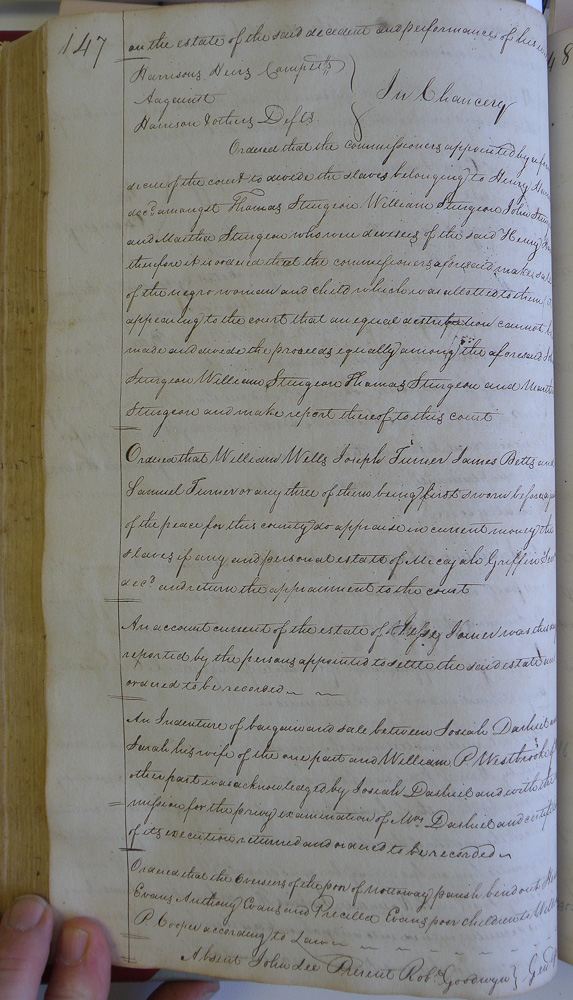 147
on the estate of the said decedent and performances of his
Harrisons Heirs Complts
Aagainst
Harrison & others Defts
In Chancery
Ordered that the commissioners appointed by
decree of the court to divide the slaves belonging to Henry
decd amongst Thomas Sturgeon William Sturgeon John
and Martha Sturgeon who were devisees of the said Henry
therefore it is ordered that the commissioners aforesaid make sale
of the negro woman and child which was allotted to them
appearing to the court that an equal distribution cannot be
made and divide the proceeds equally among the aforesaid
Sturgeon William Sturgeon Thomas Sturgeon and Martha
Sturgeon and make report thereof to this court
Ordered that William Wells Joseph Turner James Betts and
Samuel Turner or any three of them being first sworn before a
of the peace for this county do appraise in current money the
slaves if any and personal estate of Micajah Griffin
decd and return the appraisment to the court
An account current of the estate of Jesse Joiner was this
reported by the persons appointed to settle the said estate and
ordered to be recorded
An Indenture of bargain and sale between Josiah Dashiel and
Sarah his wife of the one part and William P Westbrook of
other part was acknowledged by Josiah Dashiel and with the
mission for the privy examination of Mrs Dashiel and certificate
of its execution returned and ordered to be recorded
Ordered that the Overseers of the poor of Nottoway parish bind out
Evans Anthony Evans and Precilla Evans poor children to
P. Cooper according to Law
Absent John Lee Present Robt Goodwyn } Gent